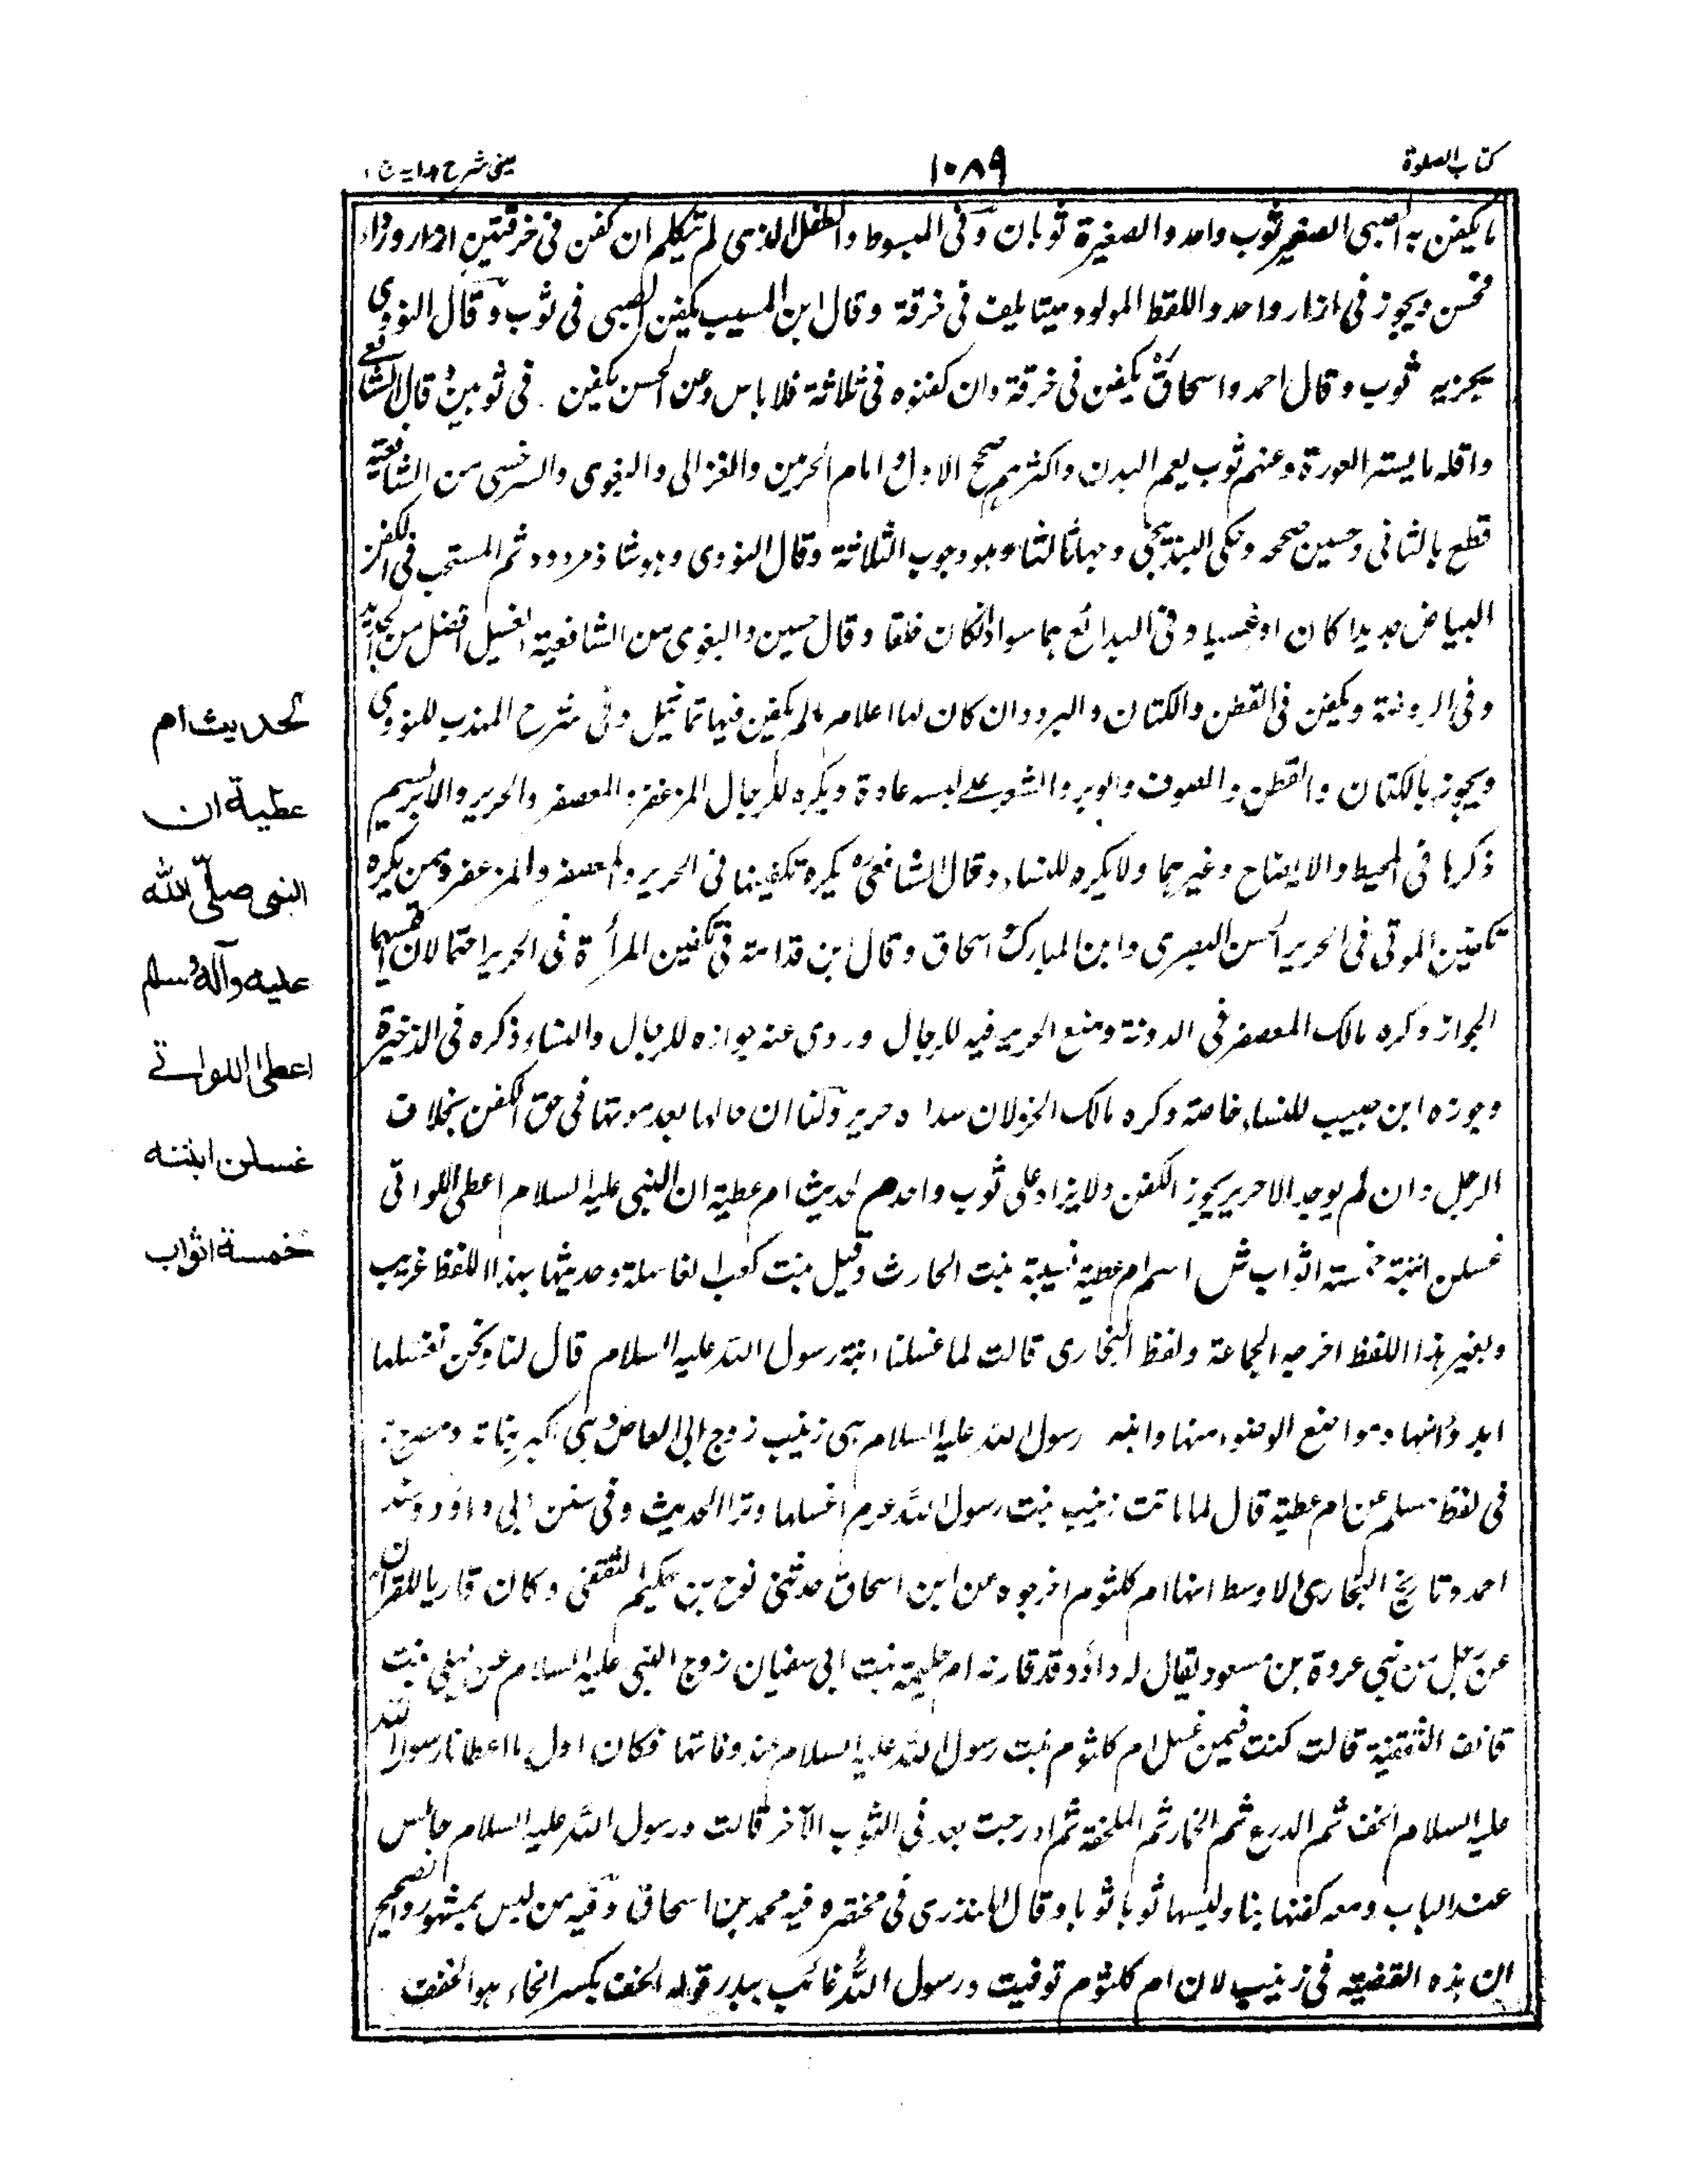 كتاب الصلوة
١٠٨٩
عيني شرح هدايه ج ١
ما يكفن به الصبي الصغير ثوب واحد والصغيرة ثوبان وفي المبسوط والطفل الذي لم يتكلم ان كفن في خرقتين ازار ورداء
فحسن ويجوز في ازار واحد والسقط المولود ميتا يلف في خرقة وقال ابن المسيب يكفن الصبي في ثوب وقال النووي
يجزيه ثوب وقال احمد واسحاق يكفن في خرقة وان كفنوه في ثلاثة فلا باس وعن الحسن يكفن في ثوبين قال الشافعي
واقله ما يستر العورة وعنهم ثوب يعم البدن واكثرهم صحح الاول وامام الحرمين والغزالي والبغوي والسرخسي من الشافعية
قطع بالثاني وحسين صححه وحكى البندنيجي وجها ثالثا وهو وجوب الثلاثة وقال النووي وهو شاذ مردود ثم المستحب في الكفن
البياض جديدا كان او غسيلا وفي البدائع هما سواء ان كان خلقا وقال حسين والبغوي من الشافعية الغسيل افضل من الجديد
وفي الروضة ويكفن في القطن والكتان والبرود ان كان لها اعلام ما لم يكفن فيها تماثيل وفي شرح المهذب للنووي
ويجوز بالكتان والقطن والصوف والوبر والشعر على لبسه عادة ويكره للرجال المزعفر والمعصفر والحرير والابريسم
ذكرها في المحيط والايضاح وغيرهما ولا يكره للنساء وقال الشافعي يكره تكفينها في الحرير والمعصفر والمزعفر وممن يكره
تكفين الموتى في الحرير الحسن البصري وابن المبارك واسحاق وقال ابن قدامة في تكفين المرأة في الحرير احتمالان اقيسهما
الجواز وكره مالك المعصفر في المدونة ومنع الحرير فيه للرجال وروى عنه جوازه للرجال والنساء ذكره في الذخيرة
وجوزه ابن حبيب للنساء خاصة وكره مالك الخز لان سداه حرير ولنا ان حالها بعد موتها في حق الكفن بخلاف
الرجل وان لم يوجد الا حرير يجوز الكفن ولا يزاد على ثوب واحد م لحديث ام عطية ان النبي عليه السلام اعطى اللواتي
غسلن ابنته خمسة اثواب ش اسم ام عطية نسيبة بنت الحارث وقيل بنت كعب الغاسلة وحديثها بهذا اللفظ غريب
وبغير هذا اللفظ اخرجه الجماعة ولفظ البخاري قالت لما غسلنا ابنة رسول الله عليه السلام قال لنا ونحن نغسلها
ابدؤا منها ومواضع الوضوء منها وابنة رسول الله عليه السلام هي زينب زوج ابي العاص وهي اكبر بناته ومصرح
في لفظ مسلم عن ام عطية قال لما ماتت زينب بنت رسول الله عوم اغسلها وترا الحديث وفي سنن ابي داؤد ومسند
احمد وتاريخ البخاري الاوسط انها ام كلثوم اخرجوه عن ابن اسحاق حدثني نوح بن حكيم الثقفي وكان قاريا للقرآن
عن رجل من بني عروة بن مسعود يقال له داؤد قد قارنه ام حبيبة بنت ابي سفيان زوج النبي عليه السلام عن ليلى بنت
قانف الثقفية قالت كنت فيمن غسل ام كلثوم بنت رسول الله عليه السلام عند وفاتها فكان اول ما اعطانا رسول الله
عليه السلام الحف ثم الدرع ثم الخمار ثم الملحفة ثم ادرجت بعد في الثوب الآخر قالت ورسول الله عليه السلام جالس
عند الباب ومعه كفنها ينا وليسها ثوبا ثوبا وقال المنذري في مختصره فيه محمد بن اسحاق وفيه من ليس بمشهور والصحيح
ان هذه القضية في زينب لان ام كلثوم توفيت ورسول الله غائب ببدر قوله الحف بكسر الحاء هو الحفف
لحديث ام
عطية ان
النبي صلى الله
عليه وآله وسلم
اعطى اللواتي
غسلن ابنته
خمسة اثواب